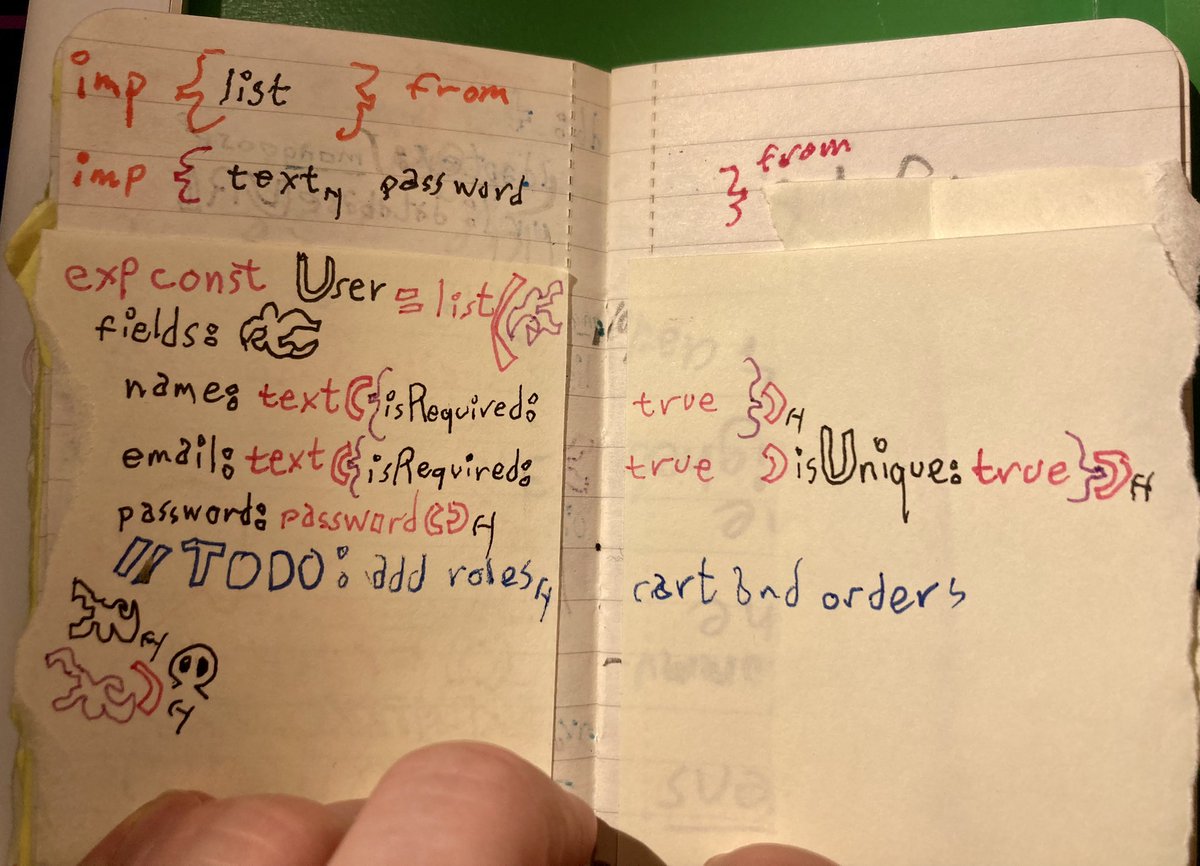 imp { list } from
imp { text, password } from
exp const User = list({
fields: {
name: text({ isRequired: true }),
email: text({ isRequired: true, isUnique: true }),
password: password(),
// TODO: add roles, cart and orders
},
});